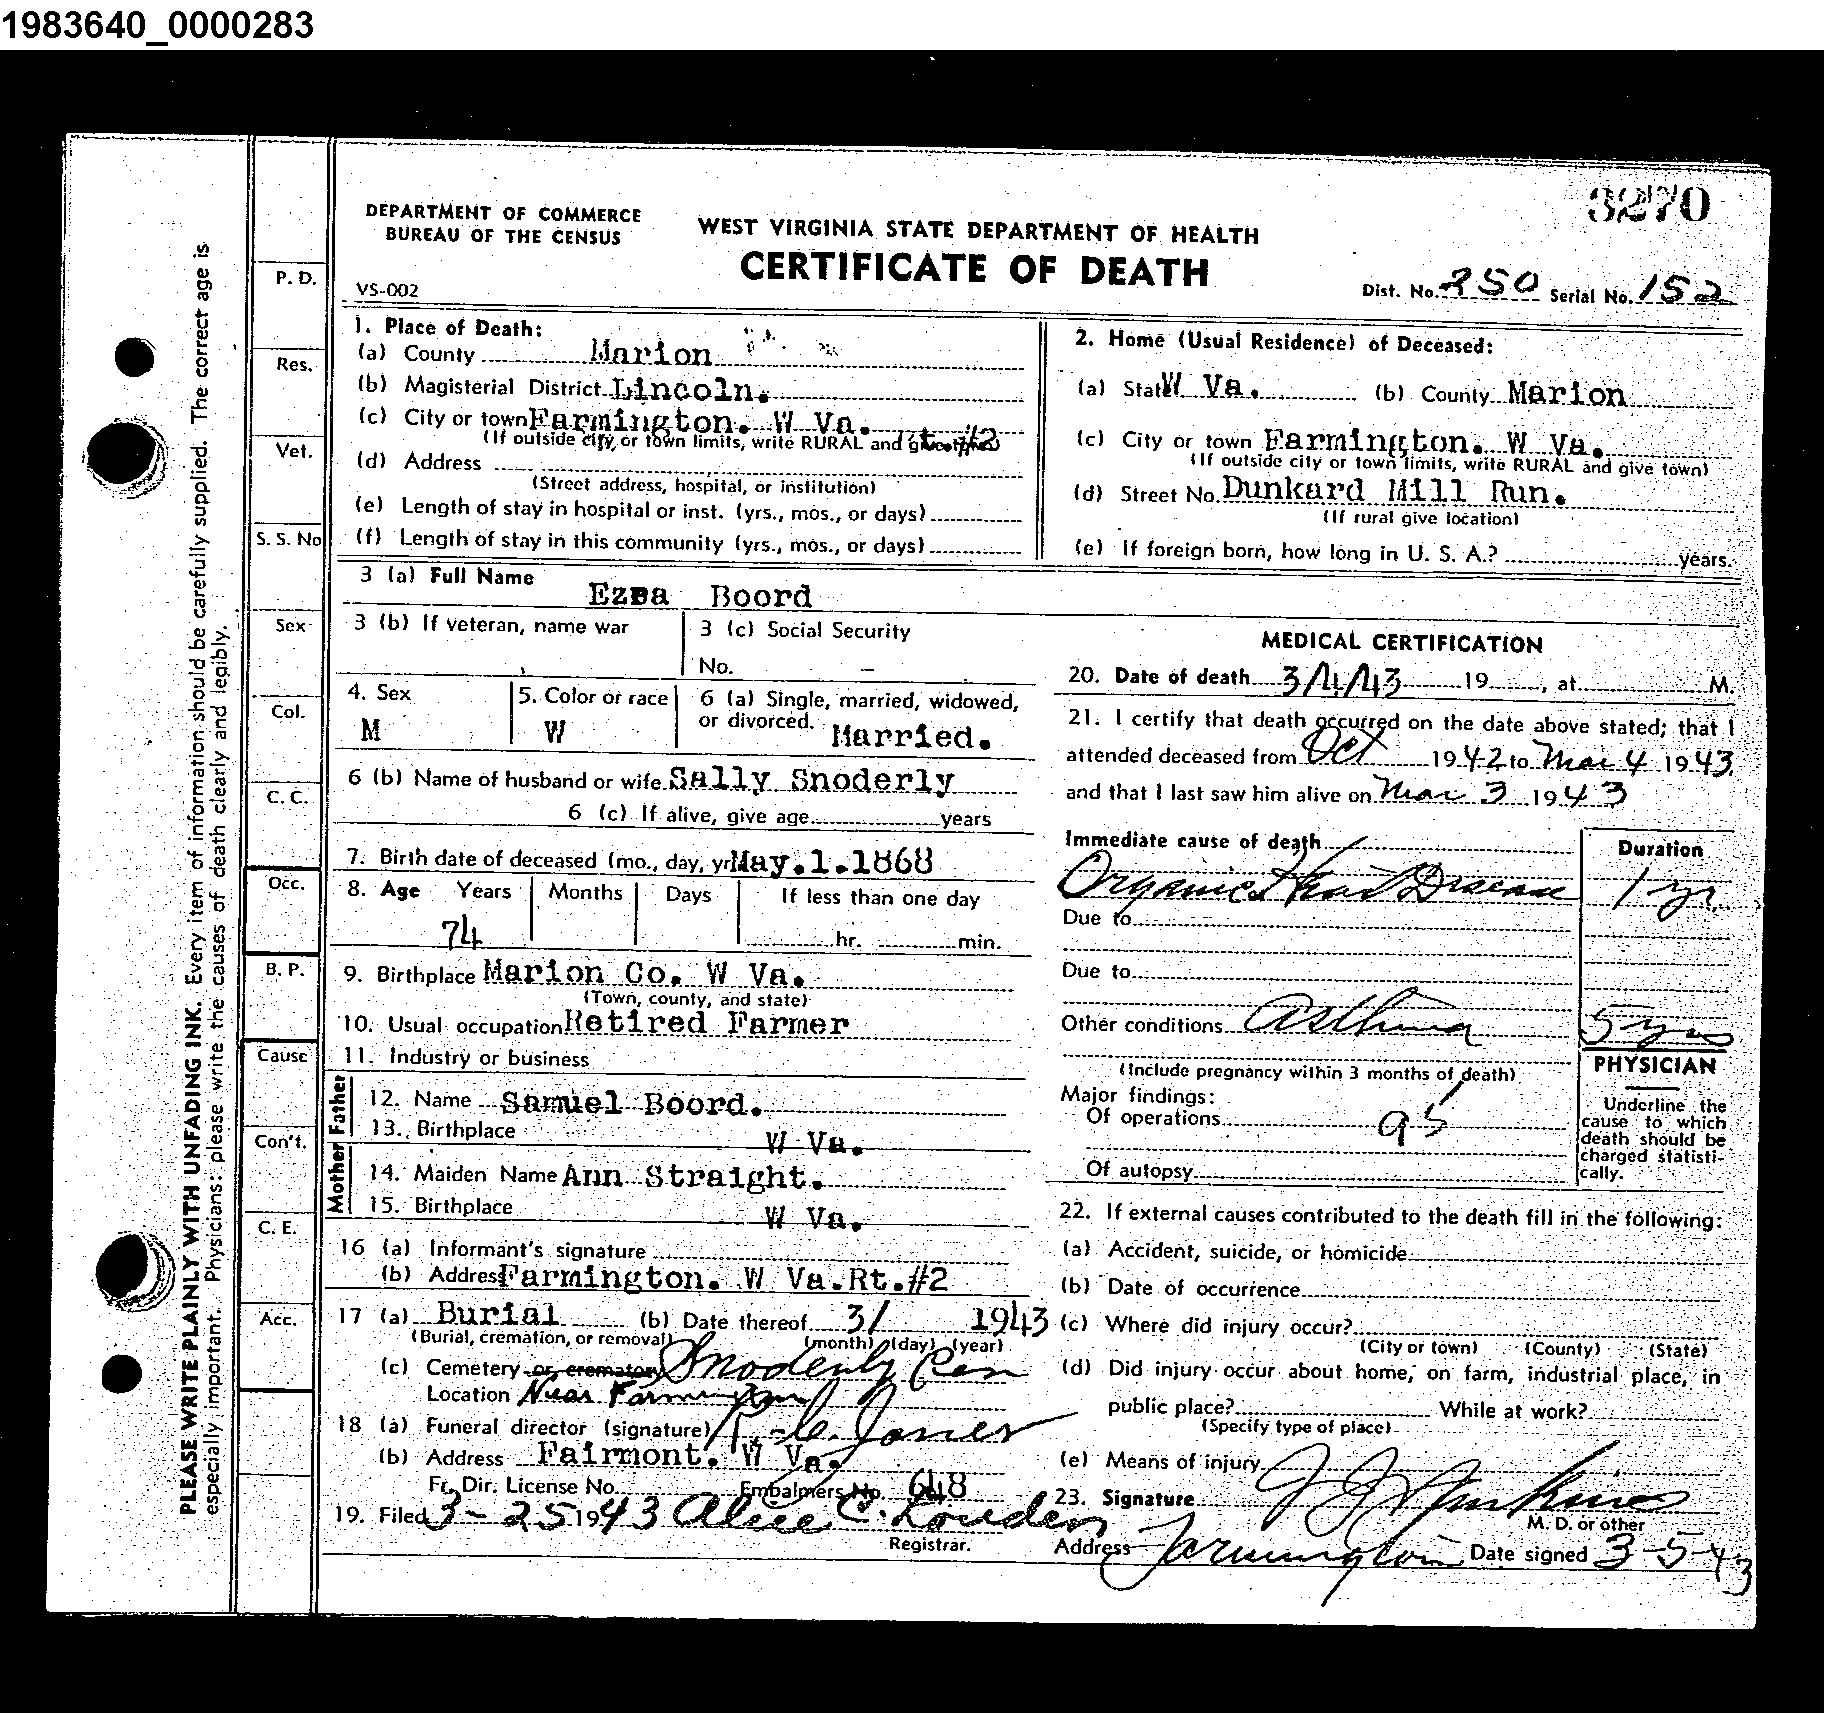 1983640_0000283
3270
DEPARTMENT OF COMMERCE
BUREAU OF THE CENSUS
WEST VIRGINIA STATE DEPARTMENT OF HEALTH
CERTIFICATE OF DEATH
VS-002
Dist. No. 250 Serial No. 152
PLEASE WRITE PLAINLY WITH UNFADING INK. Every item of information should be carefully supplied. The correct age is
especially important. Physicians: please write the causes of death clearly and legibly.
P. D.
Res.
Vet.
S. S. No
Sex
Col.
C. C.
Occ.
B. P.
Cause
Con't.
C. E.
Acc.
1. Place of Death:
(a) County Marion
(b) Magisterial District Lincoln.
(c) City or town Farmington. W Va.
(If outside city, or town limits, write RURAL and give town) Rt.#2
(d) Address
(Street address, hospital, or institution)
(e) Length of stay in hospital or inst. (yrs., mos., or days)
(f) Length of stay in this community (yrs., mos., or days)
2. Home (Usual Residence) of Deceased:
(a) State W Va. (b) County Marion
(c) City or town Farmington. W Va.
(If outside city or town limits, write RURAL and give town)
(d) Street No. Dunkard Mill Run.
(If rural give location)
(e) If foreign born, how long in U. S. A.? years.
3 (a) Full Name Ezra Boord
3 (b) If veteran, name war
3 (c) Social Security
No. -
4. Sex M
5. Color or race W
6 (a) Single, married, widowed,
or divorced. Married.
6 (b) Name of husband or wife Sally Snoderly
6 (c) If alive, give age years
7. Birth date of deceased (mo., day, yr) May.1.1868
8. Age Years Months Days If less than one day
74 hr. min.
9. Birthplace Marion Co. W Va.
(Town, county, and state)
10. Usual occupation Retired Farmer
11. Industry or business
Father
12. Name Samuel Boord.
13. Birthplace W Va.
Mother
14. Maiden Name Ann Straight.
15. Birthplace W Va.
16 (a) Informant's signature
(b) Address Farmington. W Va.Rt.#2
17 (a) Burial (b) Date thereof 3/ 1943
(Burial, cremation, or removal) (month) (day) (year)
(c) Cemetery or crematory Snoderly Cem
Location Near Farmington
18 (a) Funeral director (signature) C. Jones
(b) Address Fairmont. W Va.
Fr. Dir. License No. Embalmers No. 648
19. Filed 3-25 1943 Alice C. Louden
Registrar.
MEDICAL CERTIFICATION
20. Date of death 3/4/43 19 , at M.
21. I certify that death occurred on the date above stated; that I
attended deceased from Oct 1942 to Mar 4 1943
and that I last saw him alive on Mar 3 1943
Immediate cause of death Duration
Organic Heart Disease 1 yr.
Due to
Due to
Other conditions Asthma 5 yrs
(Include pregnancy within 3 months of death)
Major findings:
Of operations
Of autopsy
PHYSICIAN
Underline the
cause to which
death should be
charged statisti-
cally.
22. If external causes contributed to the death fill in the following:
(a) Accident, suicide, or homicide
(b) Date of occurrence
(c) Where did injury occur?
(City or town) (County) (State)
(d) Did injury occur about home, on farm, industrial place, in
public place? While at work?
(Specify type of place)
(e) Means of injury
23. Signature J J Jenkins
M. D. or other
Address Farmington Date signed 3-5-43